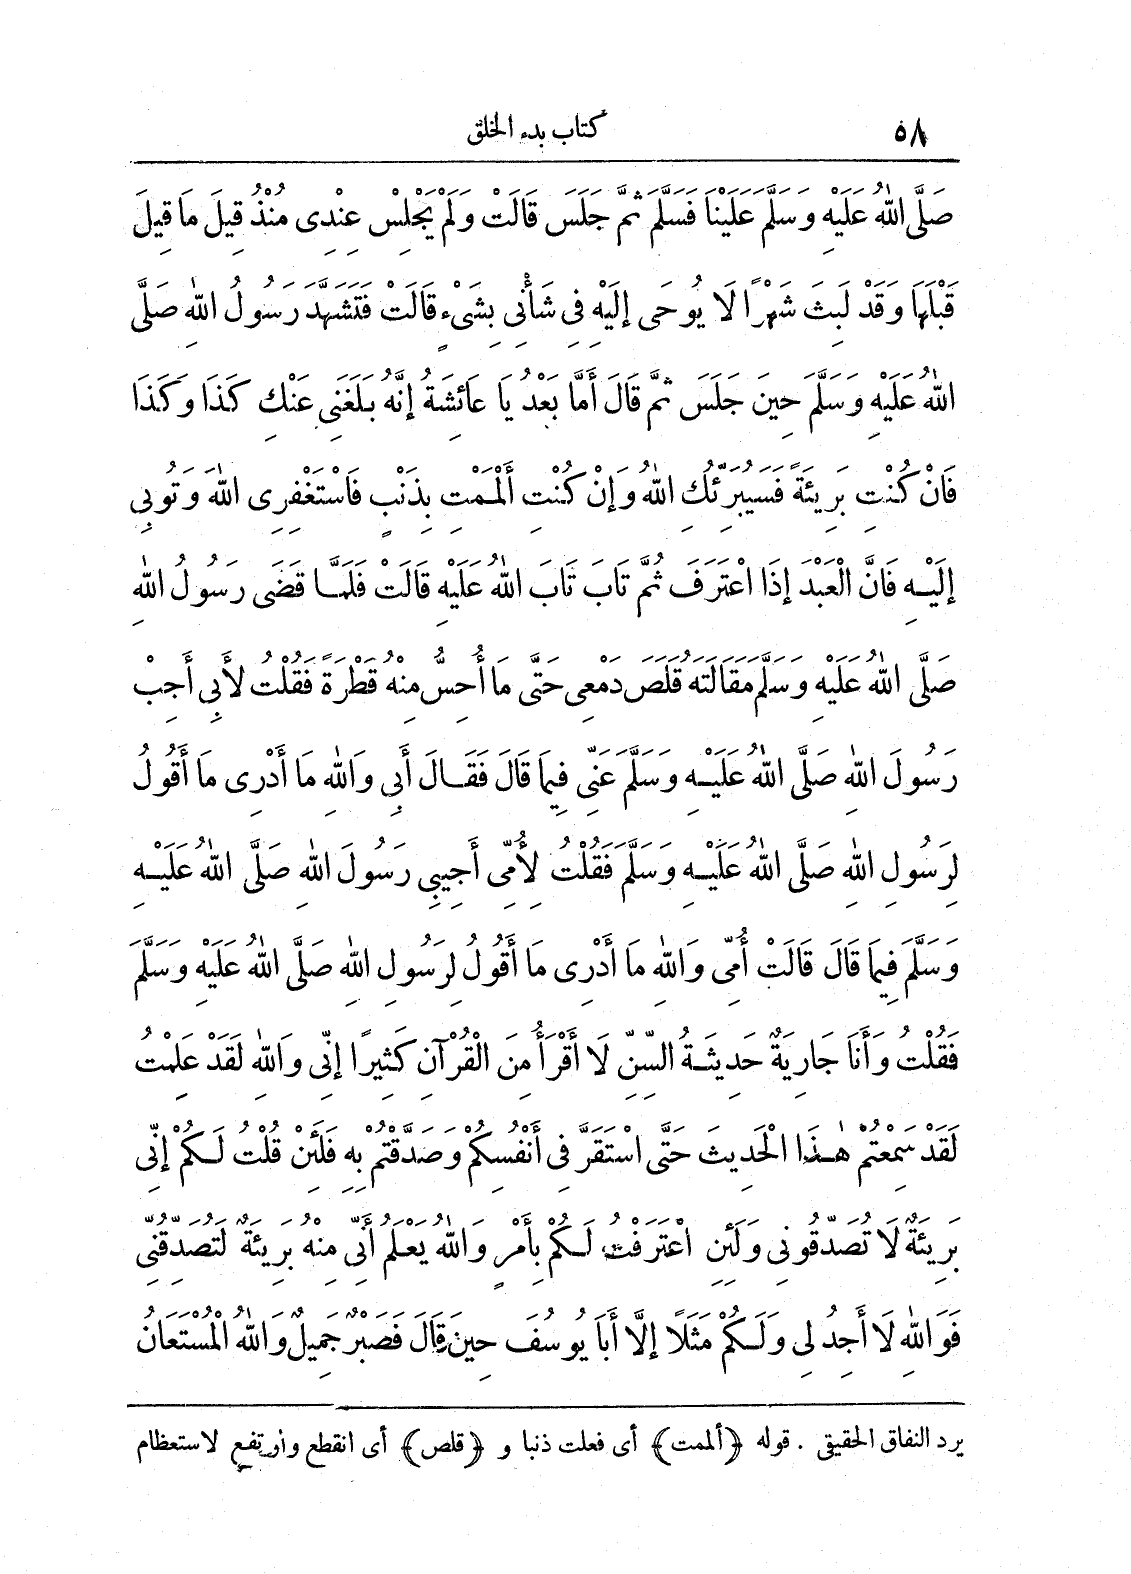 ٥٨ كتاب بدء الخلق
صَلَّى اللهُ عَلَيْهِ وَسَلَّمَ عَلَيْنَا فَسَلَّمَ ثُمَّ جَلَسَ قَالَتْ وَلَمْ يَجْلِسْ عِنْدِى مُنْذُ قِيلَ مَا قِيلَ
قَبْلَهَا وَقَدْ لَبِثَ شَهْرًا لَا يُوحَى إِلَيْهِ فِى شَأْنِى بِشَىْءٍ قَالَتْ فَتَشَهَّدَ رَسُولُ اللهِ صَلَّى
اللهُ عَلَيْهِ وَسَلَّمَ حِينَ جَلَسَ ثُمَّ قَالَ أَمَّا بَعْدُ يَا عَائِشَةُ إِنَّهُ بَلَغَنِى عَنْكِ كَذَا وَكَذَا
فَانْ كُنْتِ بَرِيئَةً فَسَيُبَرِّئُكِ اللهُ وَإِنْ كُنْتِ أَلْمَمْتِ بِذَنْبٍ فَاسْتَغْفِرِى اللهَ وَتُوبِى
إِلَيْهِ فَانَّ الْعَبْدَ إِذَا اعْتَرَفَ ثُمَّ تَابَ تَابَ اللهُ عَلَيْهِ قَالَتْ فَلَمَّا قَضَى رَسُولُ اللهِ
صَلَّى اللهُ عَلَيْهِ وَسَلَّمَ مَقَالَتَهُ قَلَصَ دَمْعِى حَتَّى مَا أُحِسُّ مِنْهُ قَطْرَةً فَقُلْتُ لأَبِى أَجِبْ
رَسُولَ اللهِ صَلَّى اللهُ عَلَيْهِ وَسَلَّمَ عَنِّى فِيمَا قَالَ فَقَالَ أَبِى وَاللهِ مَا أَدْرِى مَا أَقُولُ
لِرَسُولِ اللهِ صَلَّى اللهُ عَلَيْهِ وَسَلَّمَ فَقُلْتُ لِأُمِّى أَجِيبِى رَسُولَ اللهِ صَلَّى اللهُ عَلَيْهِ
وَسَلَّمَ فِيمَا قَالَ قَالَتْ أُمِّى وَاللهِ مَا أَدْرِى مَا أَقُولُ لِرَسُولِ اللهِ صَلَّى اللهُ عَلَيْهِ وَسَلَّمَ
فَقُلْتُ وَأَنَا جَارِيَةٌ حَدِيثَةُ السِّنِّ لَا أَقْرَأُ مِنَ الْقُرْآنِ كَثِيرًا إِنِّى وَاللهِ لَقَدْ عَلِمْتُ
لَقَدْ سَمِعْتُمْ هٰذَا الْحَدِيثَ حَتَّى اسْتَقَرَّ فِى أَنْفُسِكُمْ وَصَدَّقْتُمْ بِهِ فَلَئِنْ قُلْتُ لَكُمْ إِنِّى
بَرِيئَةٌ لَا تُصَدِّقُونِى وَلَئِنِ اعْتَرَفْتُ لَكُمْ بِأَمْرٍ وَاللهُ يَعْلَمُ أَنِّى مِنْهُ بَرِيئَةٌ لَتُصَدِّقُنِّى
فَوَاللهِ لَا أَجِدُ لِى وَلَكُمْ مَثَلًا إِلَّا أَبَا يُوسُفَ حِينَ قَالَ فَصَبْرٌ جَمِيلٌ وَاللهُ الْمُسْتَعَانُ
يرد النفاق الحقيقى . قوله ﴿ألممت﴾ أى فعلت ذنبا و ﴿قلص﴾ أى انقطع وارتفع لاستعظام